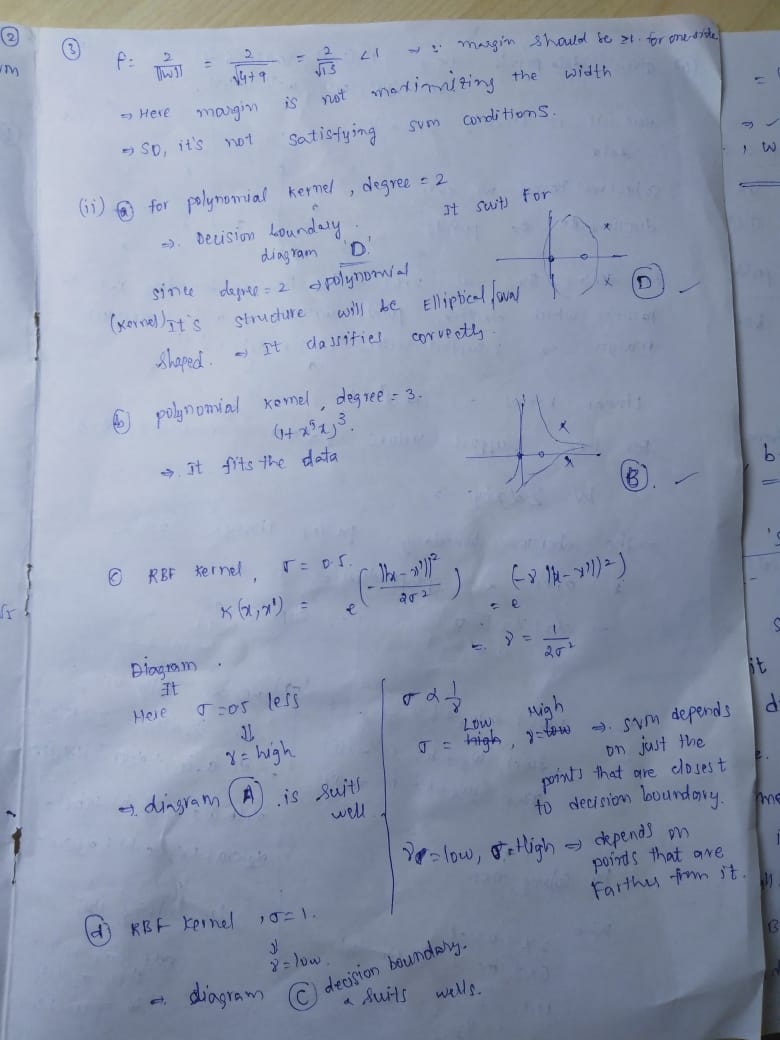 ②
③ f = 2/||w|| = 2/√4+9 = 2/√13 <1 → ∵ margin should be ≥1. for one side
⇒ Here margin is not maximizing the width
⇒ so, it's not satisfying svm conditions.
(ii) ⓐ for polynomial kernel, degree = 2
⇒. Decision boundary It suits for
diagram 'D'.
since degree = 2 → polynomial
(kernel) It's structure will be Elliptical/oval
shaped. ⇒ It classifies correctly.
x
x
Ⓓ ✓
ⓑ polynomial kernel, degree = 3.
(1+x^s x)^3.
⇒. It fits the data
x
x
Ⓑ. ✓
ⓒ RBF kernel, σ = 0.5.
K(x,x') = e^(-||x-x'||²/2σ²) = e^(-γ ||x-x'||²)
=. γ = 1/2σ²
Diagram.
It
Here σ=05 less
⇓
γ = high
⇒. diagram Ⓐ. is suits
well
σ α 1/γ
Low High
σ = high, γ=low ⇒. svm depends
on just the
points that are closest
to decision boundary.
γ=low, σ=High ⇒ depends on
points that are
Farther from it.
ⓓ RBF kernel, σ=1.
⇓
γ=low.
⇒ diagram Ⓒ decision boundary.
suits wells.